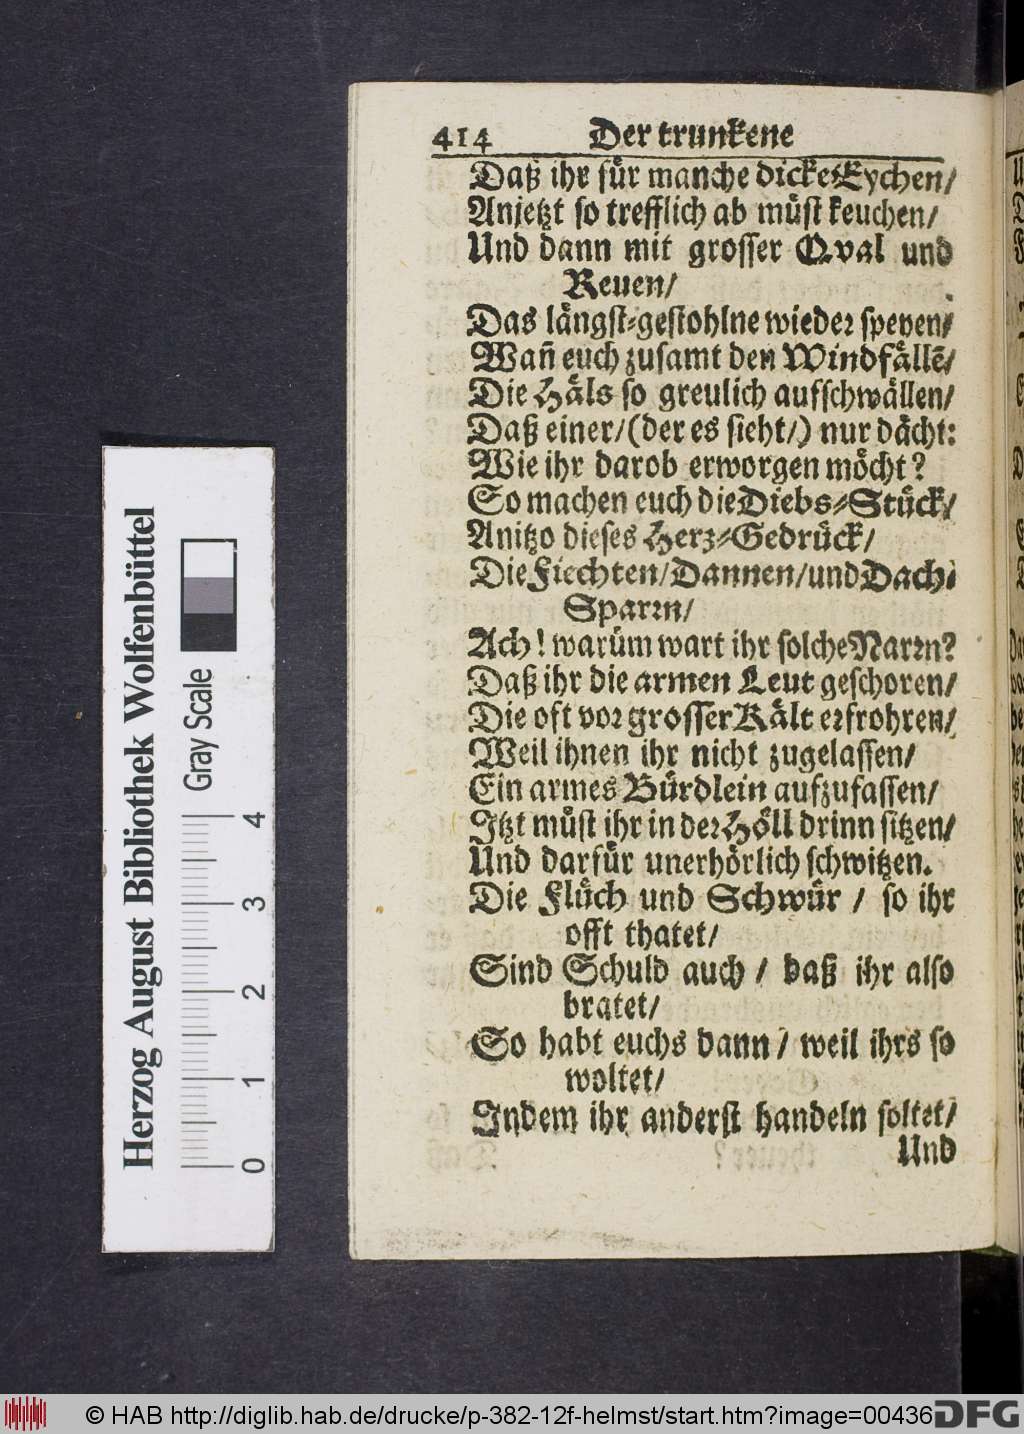 414 Der trunkene
Daß ihr für manche dicke Eychen/
Anjetzt so trefflich ab müst keuchen/
Und dann mit grosser Qval und
Reuen/
Das längst-gestohlne wieder speyen/
Wañ euch zusamt den Windfällẽ/
Die Häls so greulich aufschwällen/
Daß einer/(der es sieht/) nur dächt:
Wie ihr darob erworgen möcht?
So machen euch die Diebs-Stück/
Anitzo dieses Herz-Gedrück/
Die Fiechten/Dannen/und Dach-
Sparrn/
Ach! warüm wart ihr solche Narrn?
Daß ihr die armen Leut geschoren/
Die oft vor grosser Kält erfrohren/
Weil ihnen ihr nicht zugelassen/
Ein armes Bürdlein aufzufassen/
Itzt müst ihr in der Höll drinn sitzen/
Und darfür unerhörlich schwitzen.
Die Flüch und Schwür / so ihr
offt thatet/
Sind Schuld auch / daß ihr also
bratet/
So habt euchs dann / weil ihrs so
woltet/
Indem ihr anderst handeln soltet/
Und
Herzog August Bibliothek Wolfenbüttel
Gray Scale
0 1 2 3 4
© HAB http://diglib.hab.de/drucke/p-382-12f-helmst/start.htm?image=00436
DFG